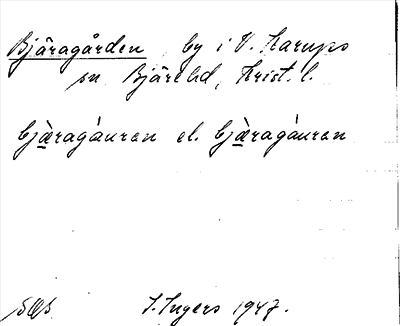 Bjäragården by i V. Karups
sn Bjäre hd, Krist. l.
bjæ̀ragáuren el. bjæ̀ragáuren
I. Ingers 1947.